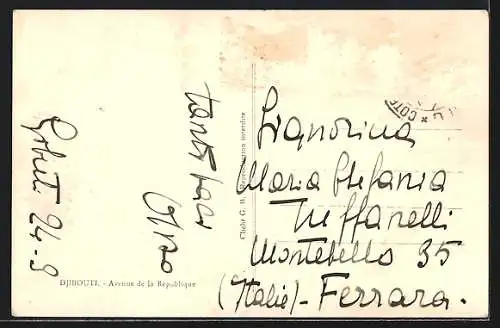 Gibuti 24-9
tanti baci
Signorina
Maria Stefania
Treffanelli
Montebello 35
(Italie) - Ferrara.
DJIBOUTI. - Avenue de la République
Cliché G. B. Reproduction interdite
COTE